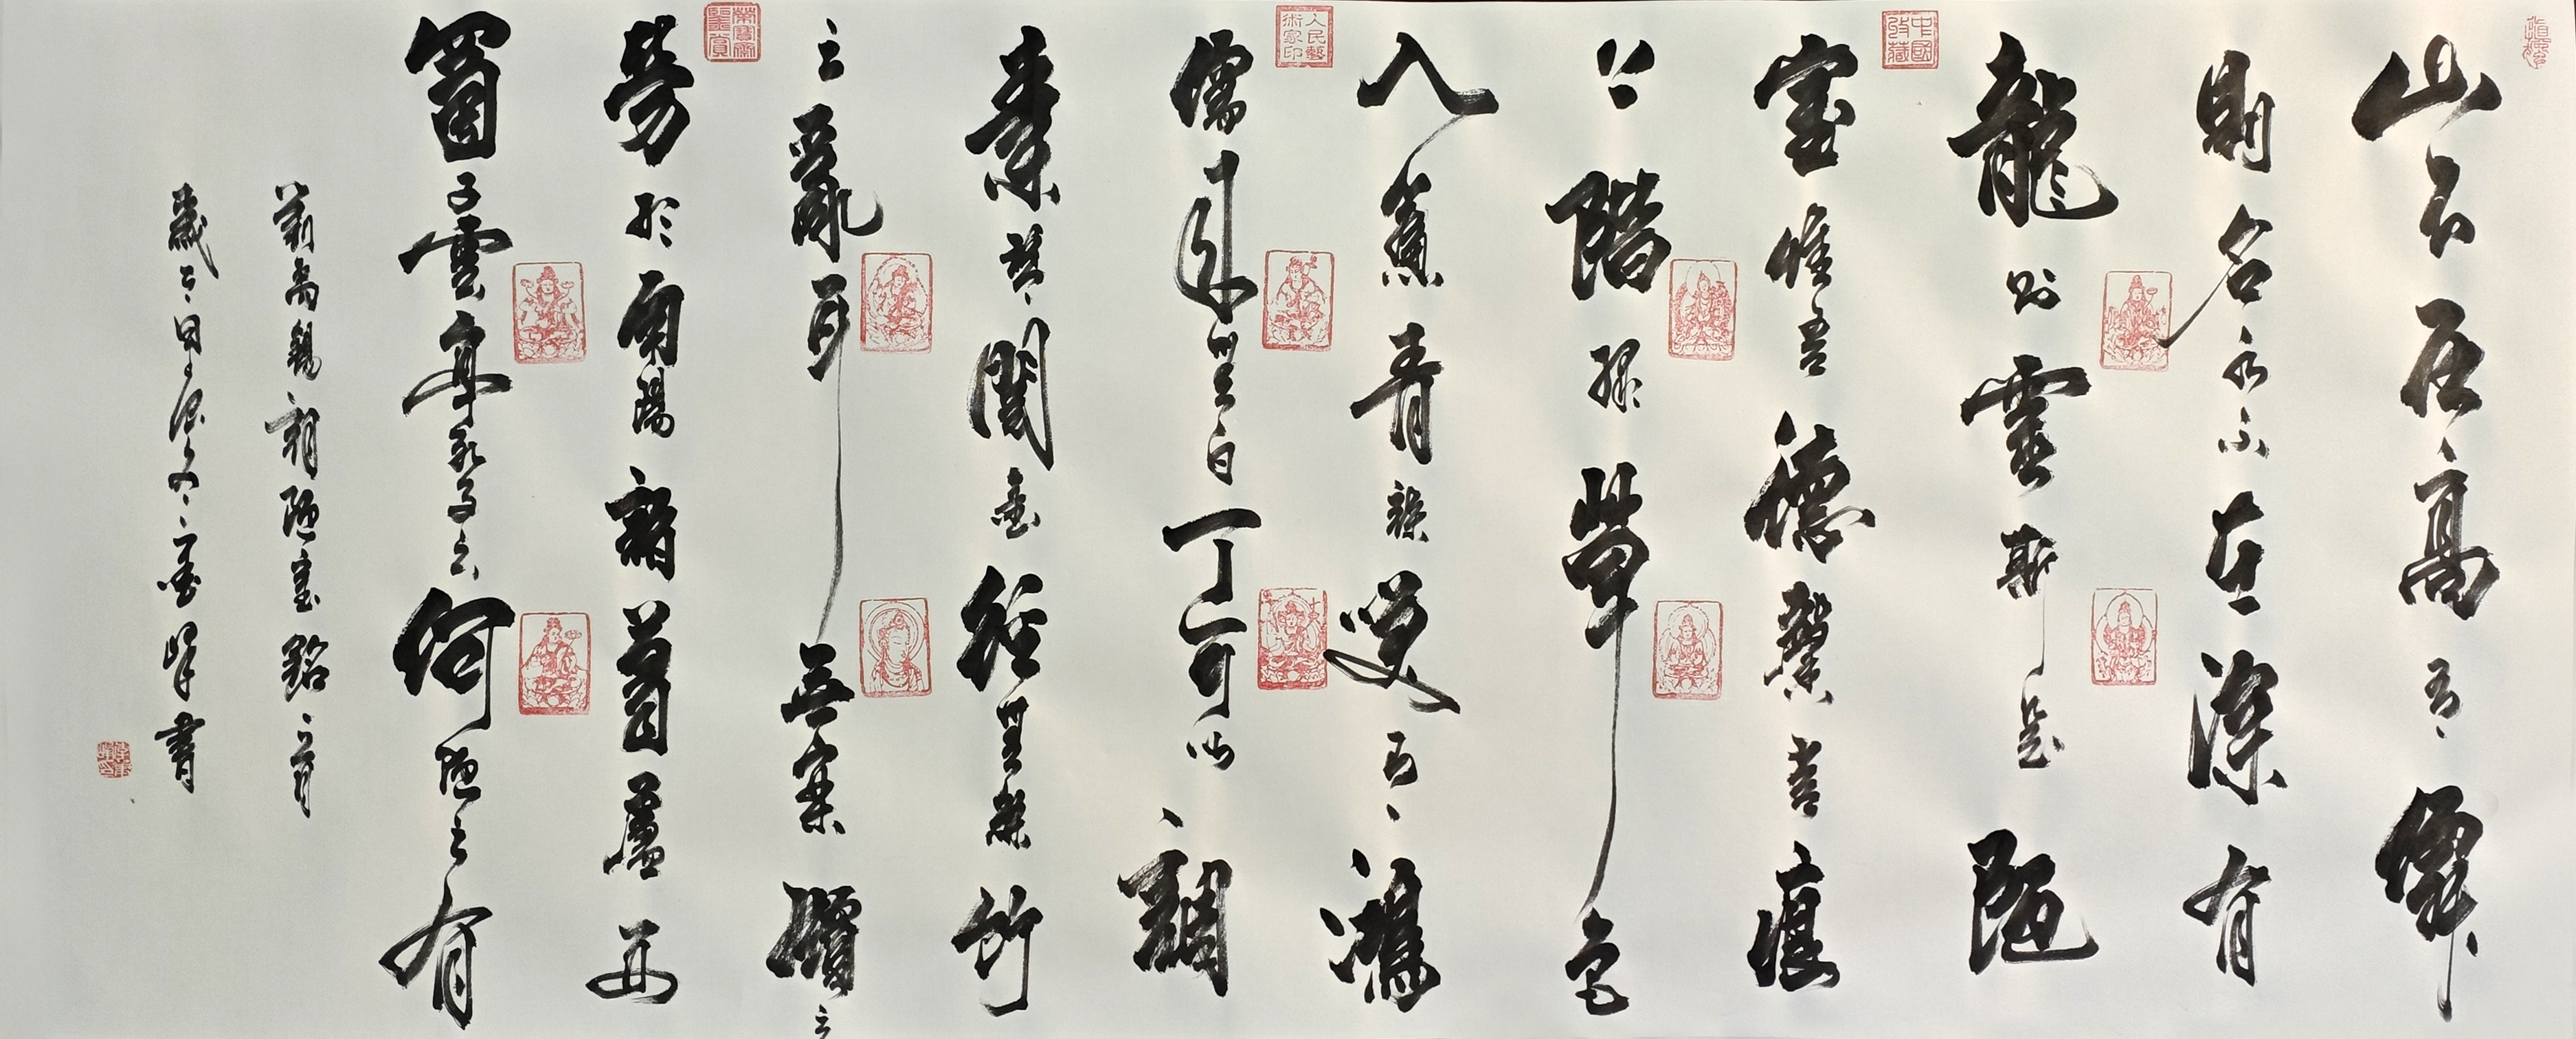 山不在高有僊
則名水不在深有
龍則靈斯是陋
室惟吾德馨苔痕
上階綠草色
入簾青談笑有鴻
儒往來無白丁可以調
素琴閱金經無絲竹
之亂耳無案牘之
勞形南陽諸葛廬西
蜀子雲亭孔子云何陋之有
劉禹錫陋室銘一首
歲書
中國收藏
人民藝術家印
榮寶齋鑒賞